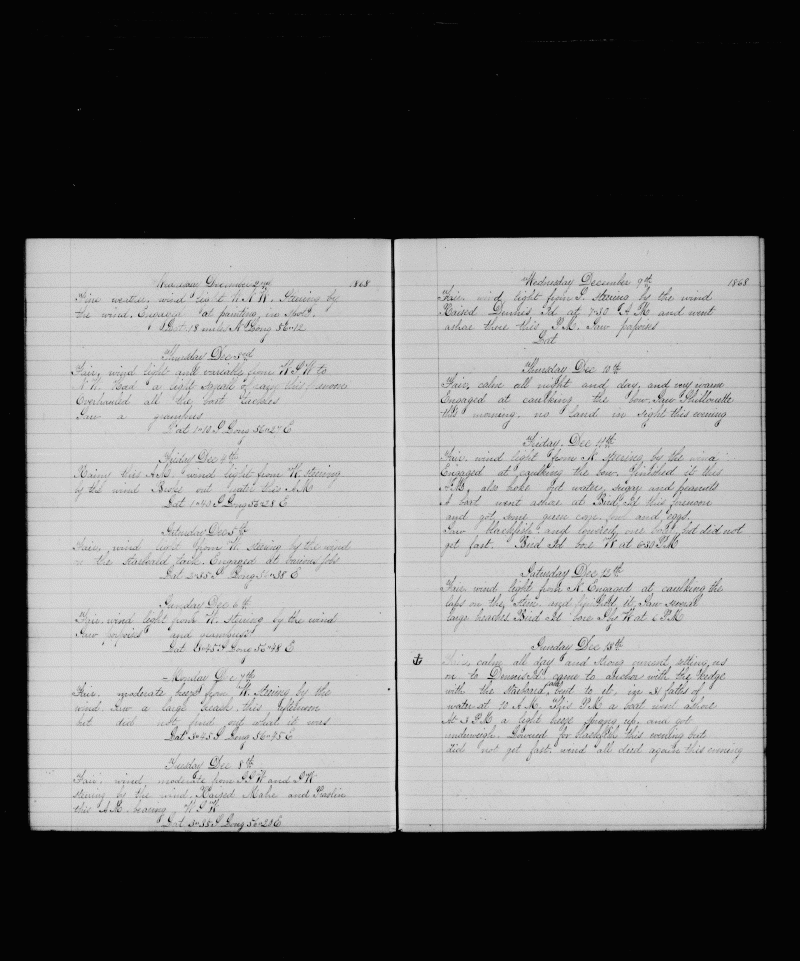 Wednesday December 2nd 1868
Fine weather, wind light N.N.W. Steering by
the wind. Engaged at painting in spots.
Lat 18 miles N Long 56-12
Thursday Dec 3rd
Fair, wind light and variable from W.S.W to
N.W. Had a light squall of rain this forenoon
Overhauled all the boat tackles
Saw a grampus
Lat 1-10 S Long 56-27 E
Friday Dec 4th
Rainy this A.M. wind light from W. steering
by the wind Broke out water this A.M
Lat 1-40 S Long 55-28 E
Saturday Dec 5th
Fair, wind light from W. steering by the wind
on the starboard tack. Engaged at various jobs
Lat 2-35 S Long 56-38 E
Sunday Dec 6th
Fair. wind light from W. Steering by the wind
Saw porpoises and grampuses
Lat 2-45 S Long 56-48 E
Monday Dec 7th
Fair. moderate breeze from W. Steering by the
wind. Saw a large splash this afternoon
but did not find out what it was
Lat 3-45 S Long 56-45 E
Tuesday Dec 8th
Fair wind moderate from S.S.W and S.W
steering by the wind. Raised Mahe and Praslin
this A.M. bearing W.S.W
Lat 3-35 S Long 56-28 E
Wednesday December 9th 1868
Fair. wind light from S. steering by the wind
Raised Dennis Id at 7-30 A.M and went
ashore there this P.M. Saw porpoises
Lat
Thursday Dec 10th
Fair, calm all night and day, and very warm
Engaged at caulking the bow. Saw Shillouette
this morning. no land in sight this evening
Friday Dec 11th
Fair. wind light from N. Steering by the wind
Engaged at caulking the bow. Finished it this
A.M., also broke out water, sugar and peanuts
A boat went ashore at Bird Id this forenoon
and got some green and eggs.
Saw blackfish and lowered one boat, but did not
get fast. Bird Id bore W at 6-30 P.M
Saturday Dec 12th
Fair, wind light from N. Engaged at caulking the
laps on the stern and finished it. Saw several
large breaches Bird Id bore S by W at 6 P.M
Sunday Dec 13th
Fair, calm all day and strong current setting us
on to Dennis Id. came to anchor with the kedge
with the starboard bent to it, in fatles of
water at 10 A.M. This P.M a boat went ashore
At 3 P.M a light breeze sprung up, and got
underweigh. Lowered for blackfish this evening but
did not get fast. wind all died again this evening